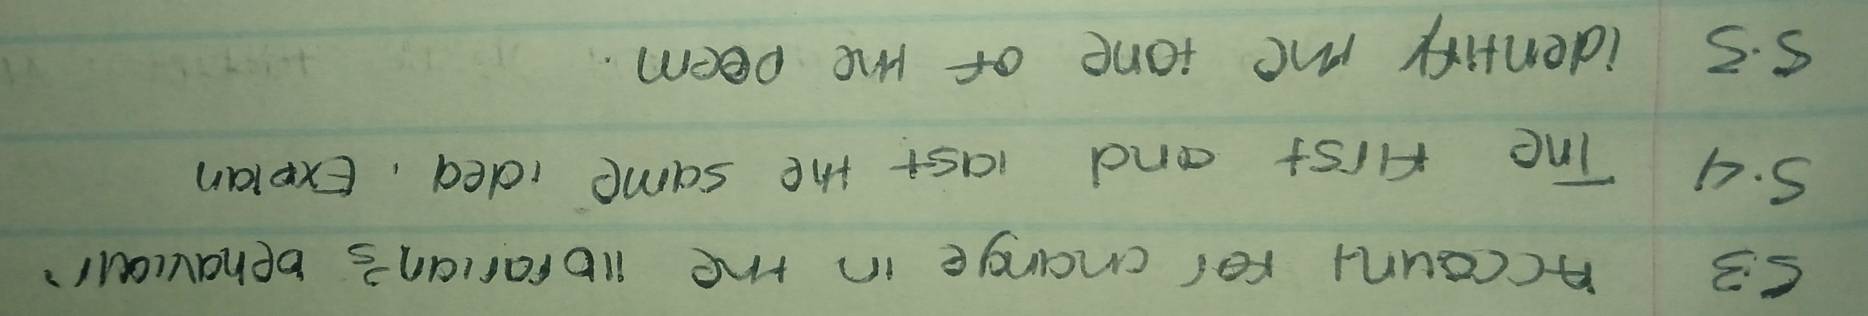 5.3 Account for change in the librarian's behaviour.
5.4 The first and last the same idea. Explan
5.5 identify the tone of the poem.